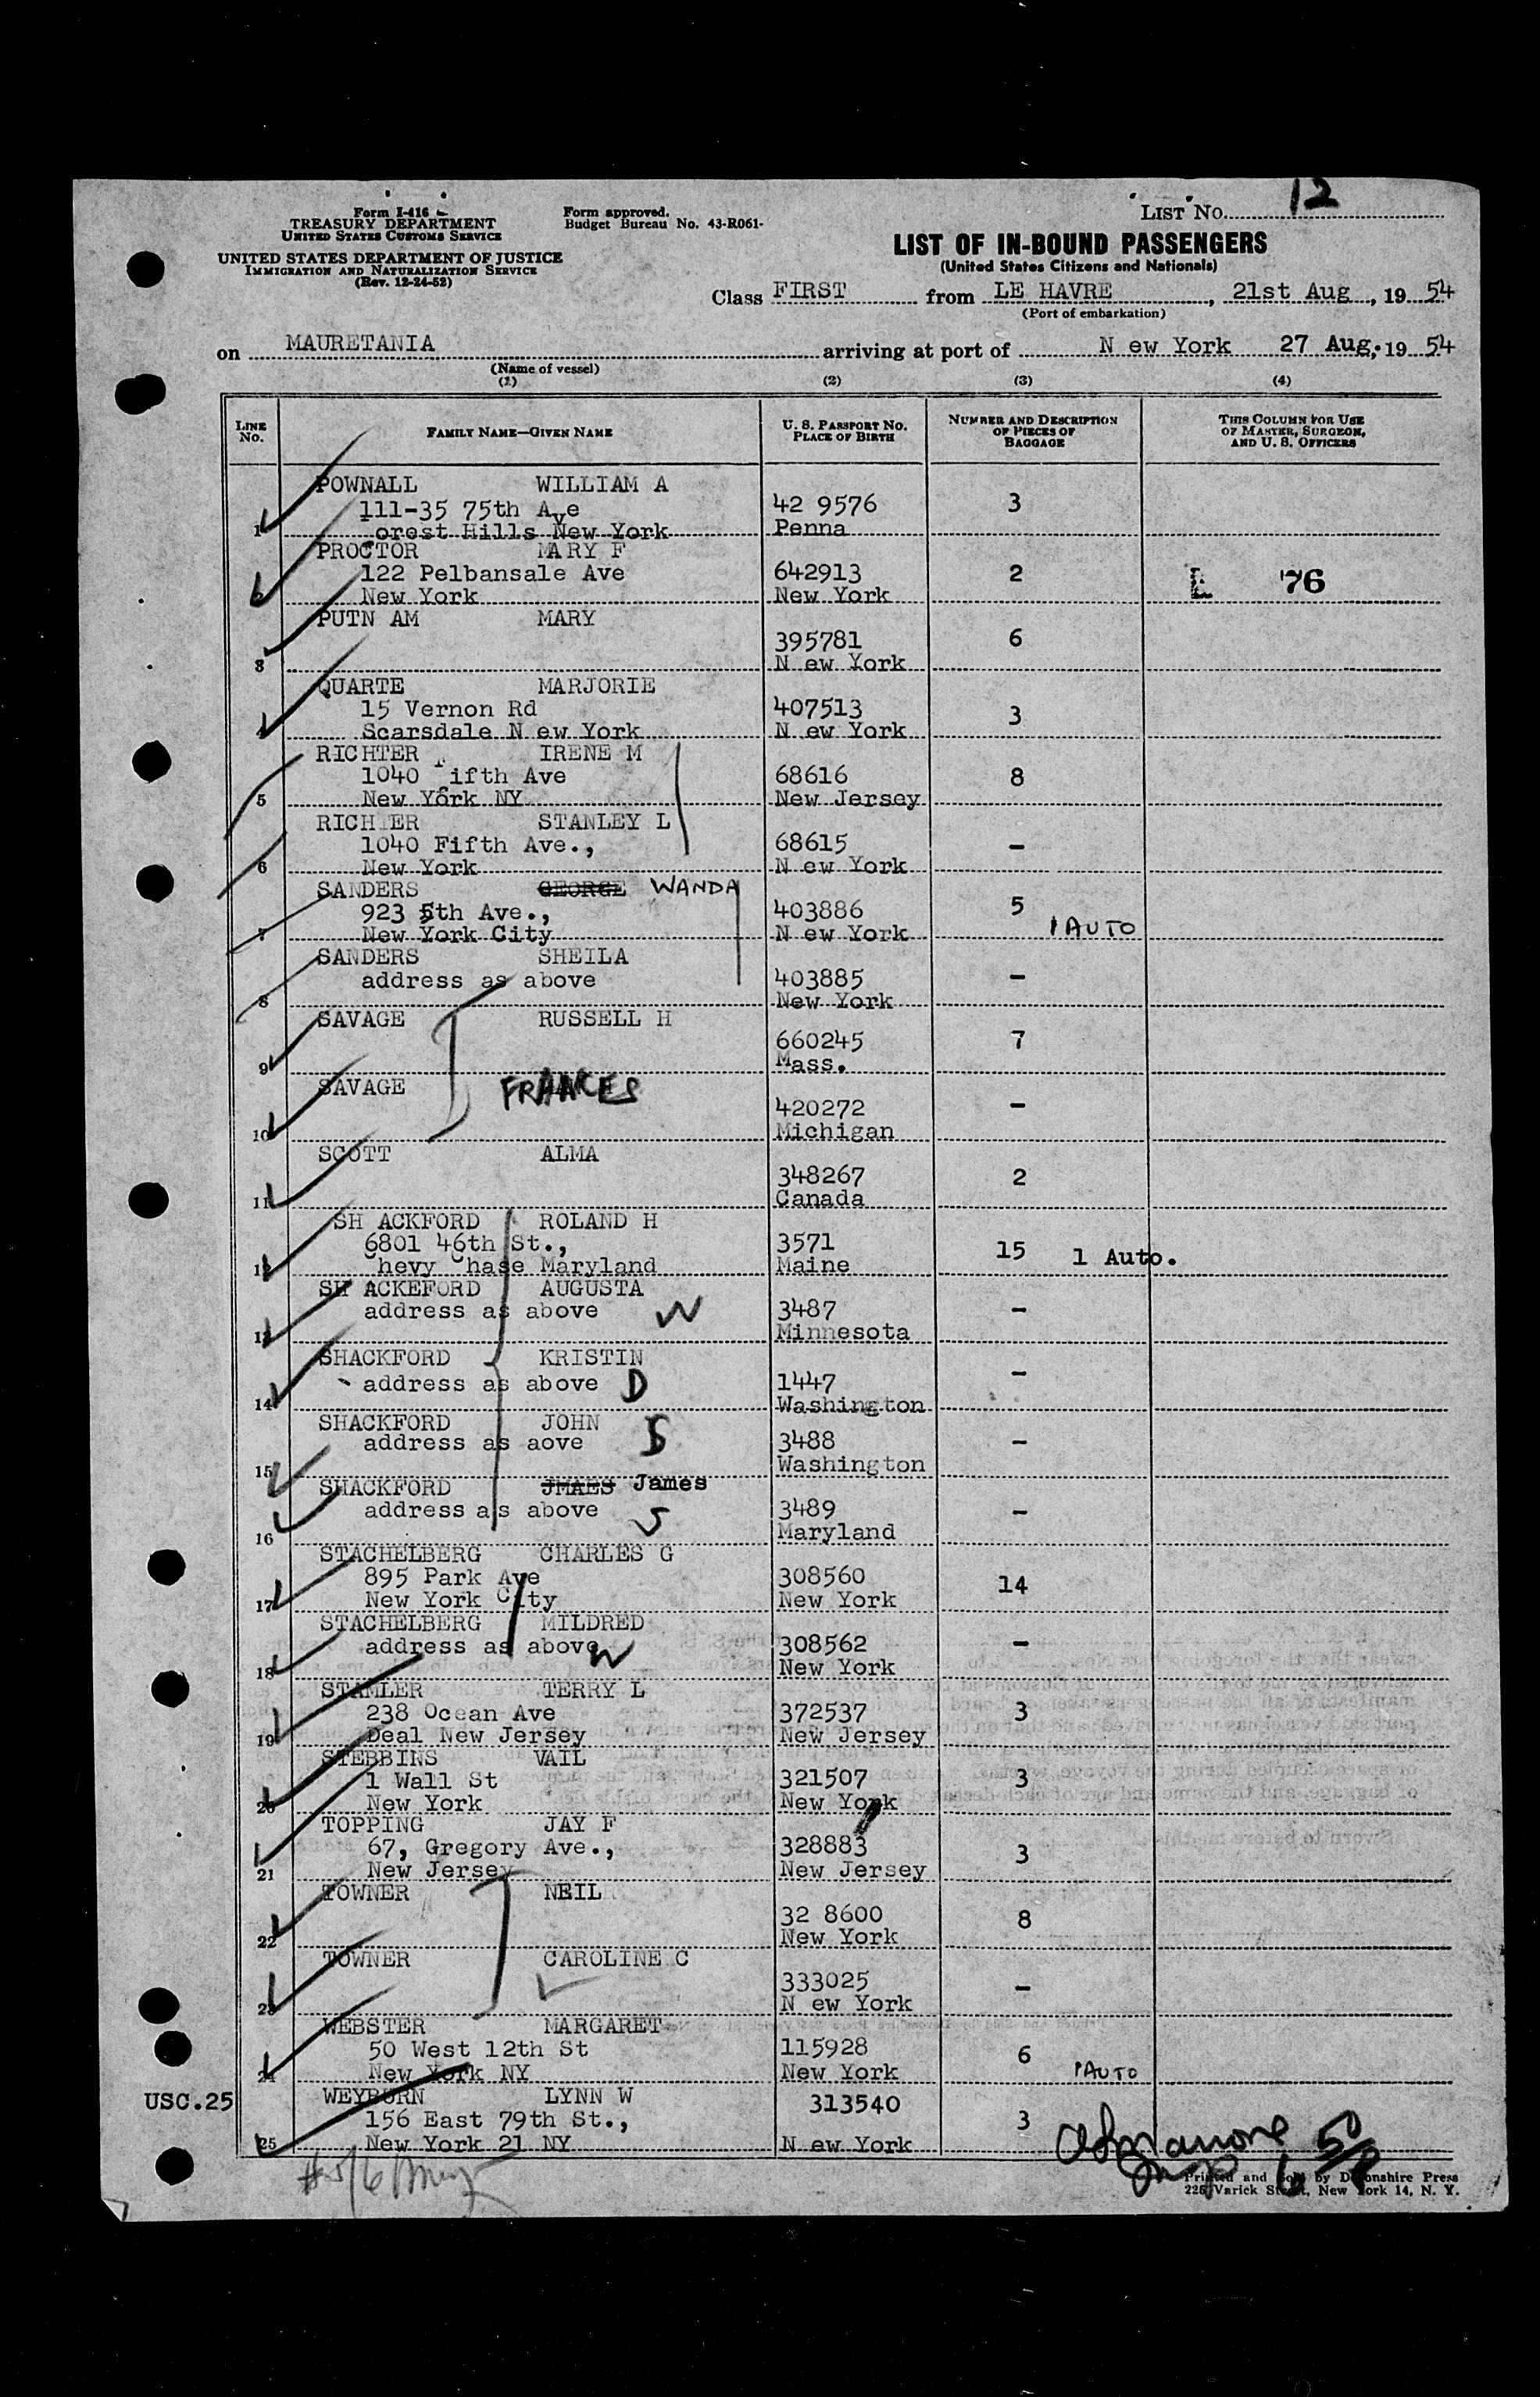 Form I-416
TREASURY DEPARTMENT
UNITED STATES CUSTOMS SERVICE
UNITED STATES DEPARTMENT OF JUSTICE
IMMIGRATION AND NATURALIZATION SERVICE
(Rev. 12-24-52)
Form approved.
Budget Bureau No. 43-R061-
LIST No. 12
LIST OF IN-BOUND PASSENGERS
(United States Citizens and Nationals)
Class FIRST from LE HAVRE, 21st Aug, 19 54
(Port of embarkation)
on MAURETANIA arriving at port of N ew York 27 Aug. 19 54
(Name of vessel)
(1) (2) (3) (4)
LINE No. FAMILY NAME—GIVEN NAME U. S. PASSPORT NO. PLACE OF BIRTH NUMBER AND DESCRIPTION OF PIECES OF BAGGAGE THIS COLUMN FOR USE OF MASTER, SURGEON, AND U. S. OFFICERS
POWNALL WILLIAM A
111-35 75th Ave 42 9576 3
1 orest Hills New York Penna
PROCTOR MARY F
122 Pelbansale Ave 642913 2 L 76
2 New York New York
PUTN AM MARY
395781 6
3 N ew York
QUARTE MARJORIE
15 Vernon Rd 407513 3
4 Scarsdale N ew York N ew York
RICHTER IRENE M
1040 Fifth Ave 68616 8
5 New York NY New Jersey
RICHTER STANLEY L
1040 Fifth Ave., 68615 -
6 New York N ew York
SANDERS GEORGE WANDA
923 5th Ave., 403886 5
7 New York City N ew York 1 AUTO
SANDERS SHEILA
address as above 403885 -
8 New York
SAVAGE RUSSELL H
660245 7
9 Mass.
SAVAGE FRANCES
420272 -
10 Michigan
SCOTT ALMA
348267 2
11 Canada
SH ACKFORD ROLAND H
6801 46th St., 3571 15 1 Auto.
12 Chevy Chase Maryland Maine
SH ACKEFORD AUGUSTA
address as above W 3487 -
13 Minnesota
SHACKFORD KRISTIN
address as above D 1447 -
14 Washington
SHACKFORD JOHN
address as aove S 3488 -
15 Washington
SHACKFORD JMAES James
address as above S 3489 -
16 Maryland
STACHELBERG CHARLES G
895 Park Ave 308560 14
17 New York City New York
STACHELBERG MILDRED
address as above W 308562 -
18 New York
STAMLER TERRY L
238 Ocean Ave 372537 3
19 Deal New Jersey New Jersey
STEBBINS VAIL
1 Wall St 321507 3
20 New York New York
TOPPING JAY F
67, Gregory Ave., 328883 3
21 New Jersey New Jersey
TOWNER NEIL
32 8600 8
22 New York
TOWNER CAROLINE C
333025 -
23 N ew York
WEBSTER MARGARET
50 West 12th St 115928 6
24 New York NY New York 1 AUTO
USC.25 WEYBURN LYNN W 313540
156 East 79th St., 3
25 New York 21 NY N ew York
Printed and Sold by Devonshire Press
225 Varick Street, New York 14, N. Y.